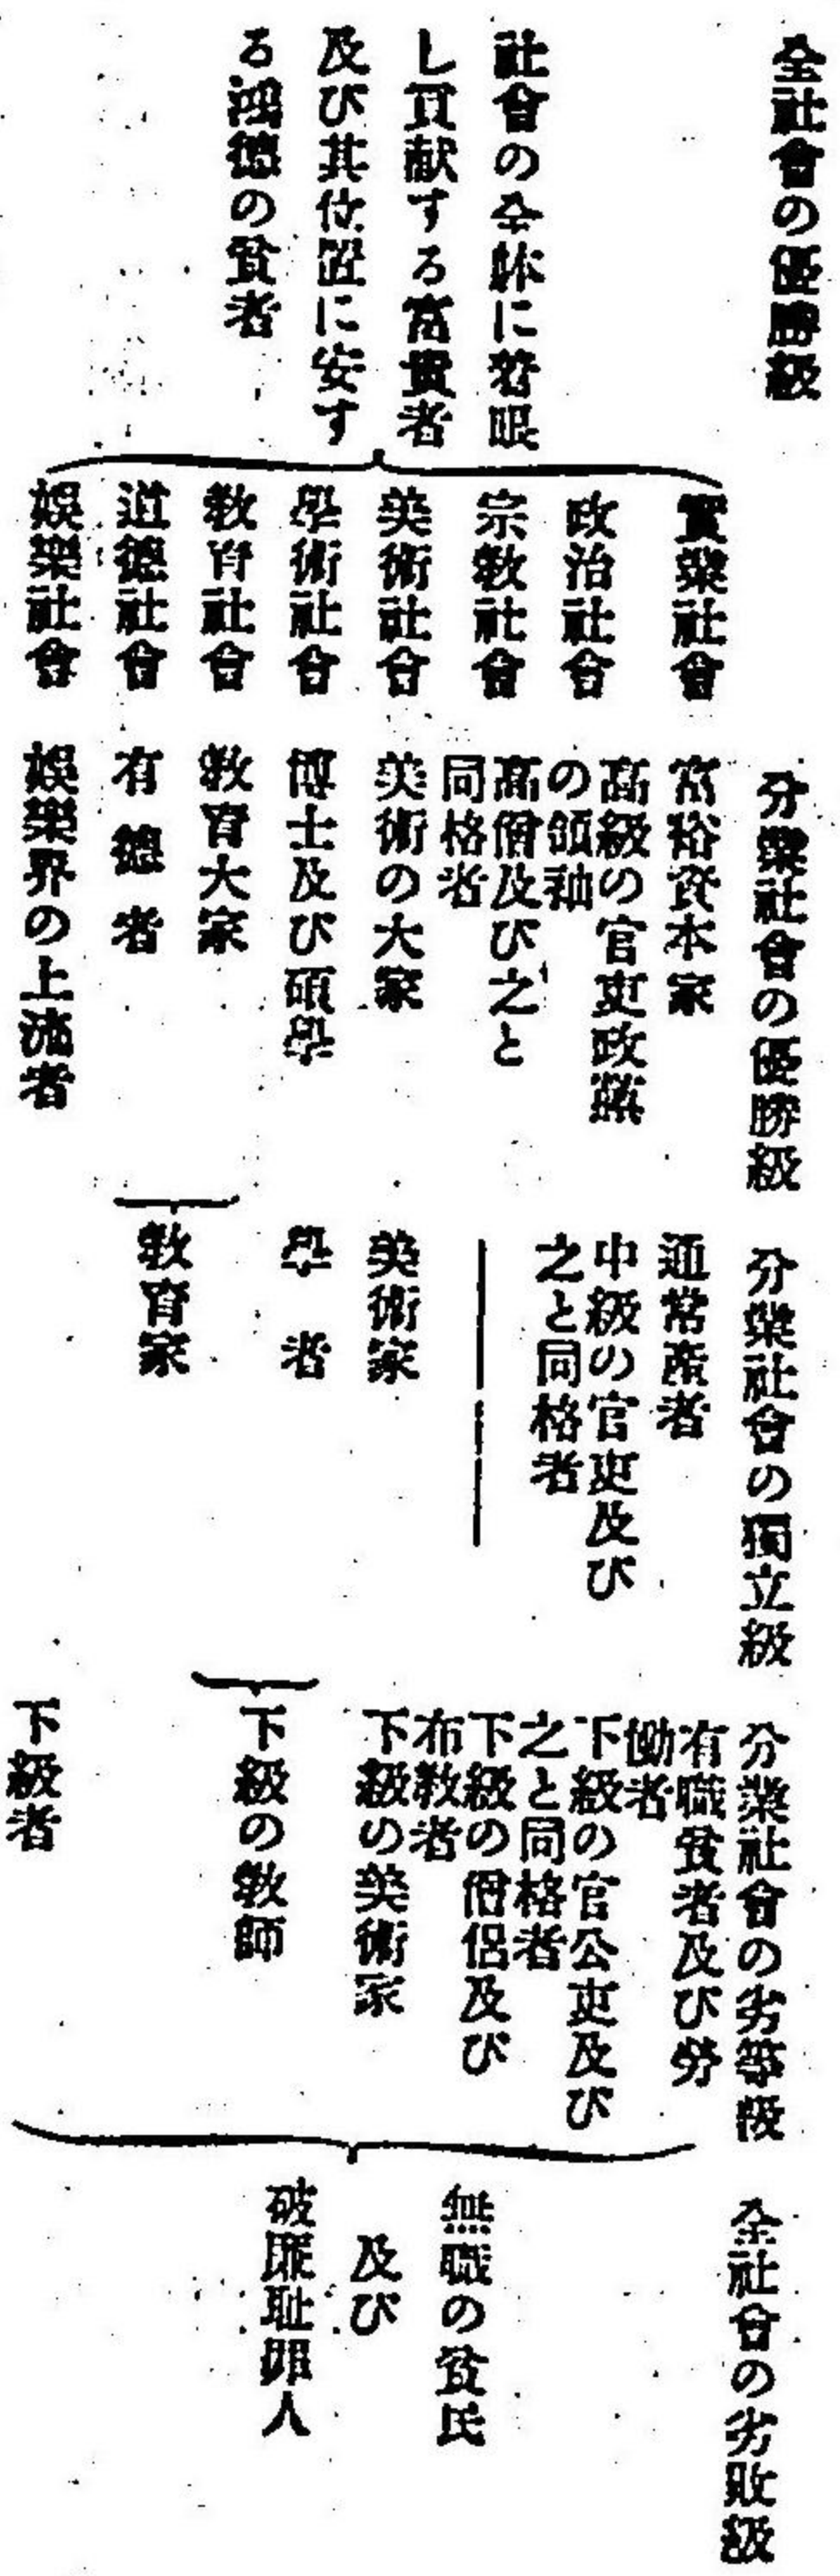 全社會の優勝級
社會の全躰に着眼
し貢献する富貴者
及び其位置に安す
る鴻德の貧者
實業社會
政治社會
宗敎社會
美術社會
學術社會
敎育社會
道德社會
娯樂社會
分業社會の優勝級
富裕資本家
高級の官吏政黨
の領袖
高僧及び之と
同格者
美術の大家
博士及び碩學
敎育大家
有德者
娯樂界の上流者
分業社會の獨立級
通常產者
中級の官吏及び
之と同格者
美術家
學者
敎育家
分業社會の劣等級
有職貧者及び勞
働者
下級の官公吏及び
之と同格者
下級の僧侶及び
布敎者
下級の美術家
下級の敎師
下級者
全社會の劣敗級
無職の貧民
及び
破廉耻罪人